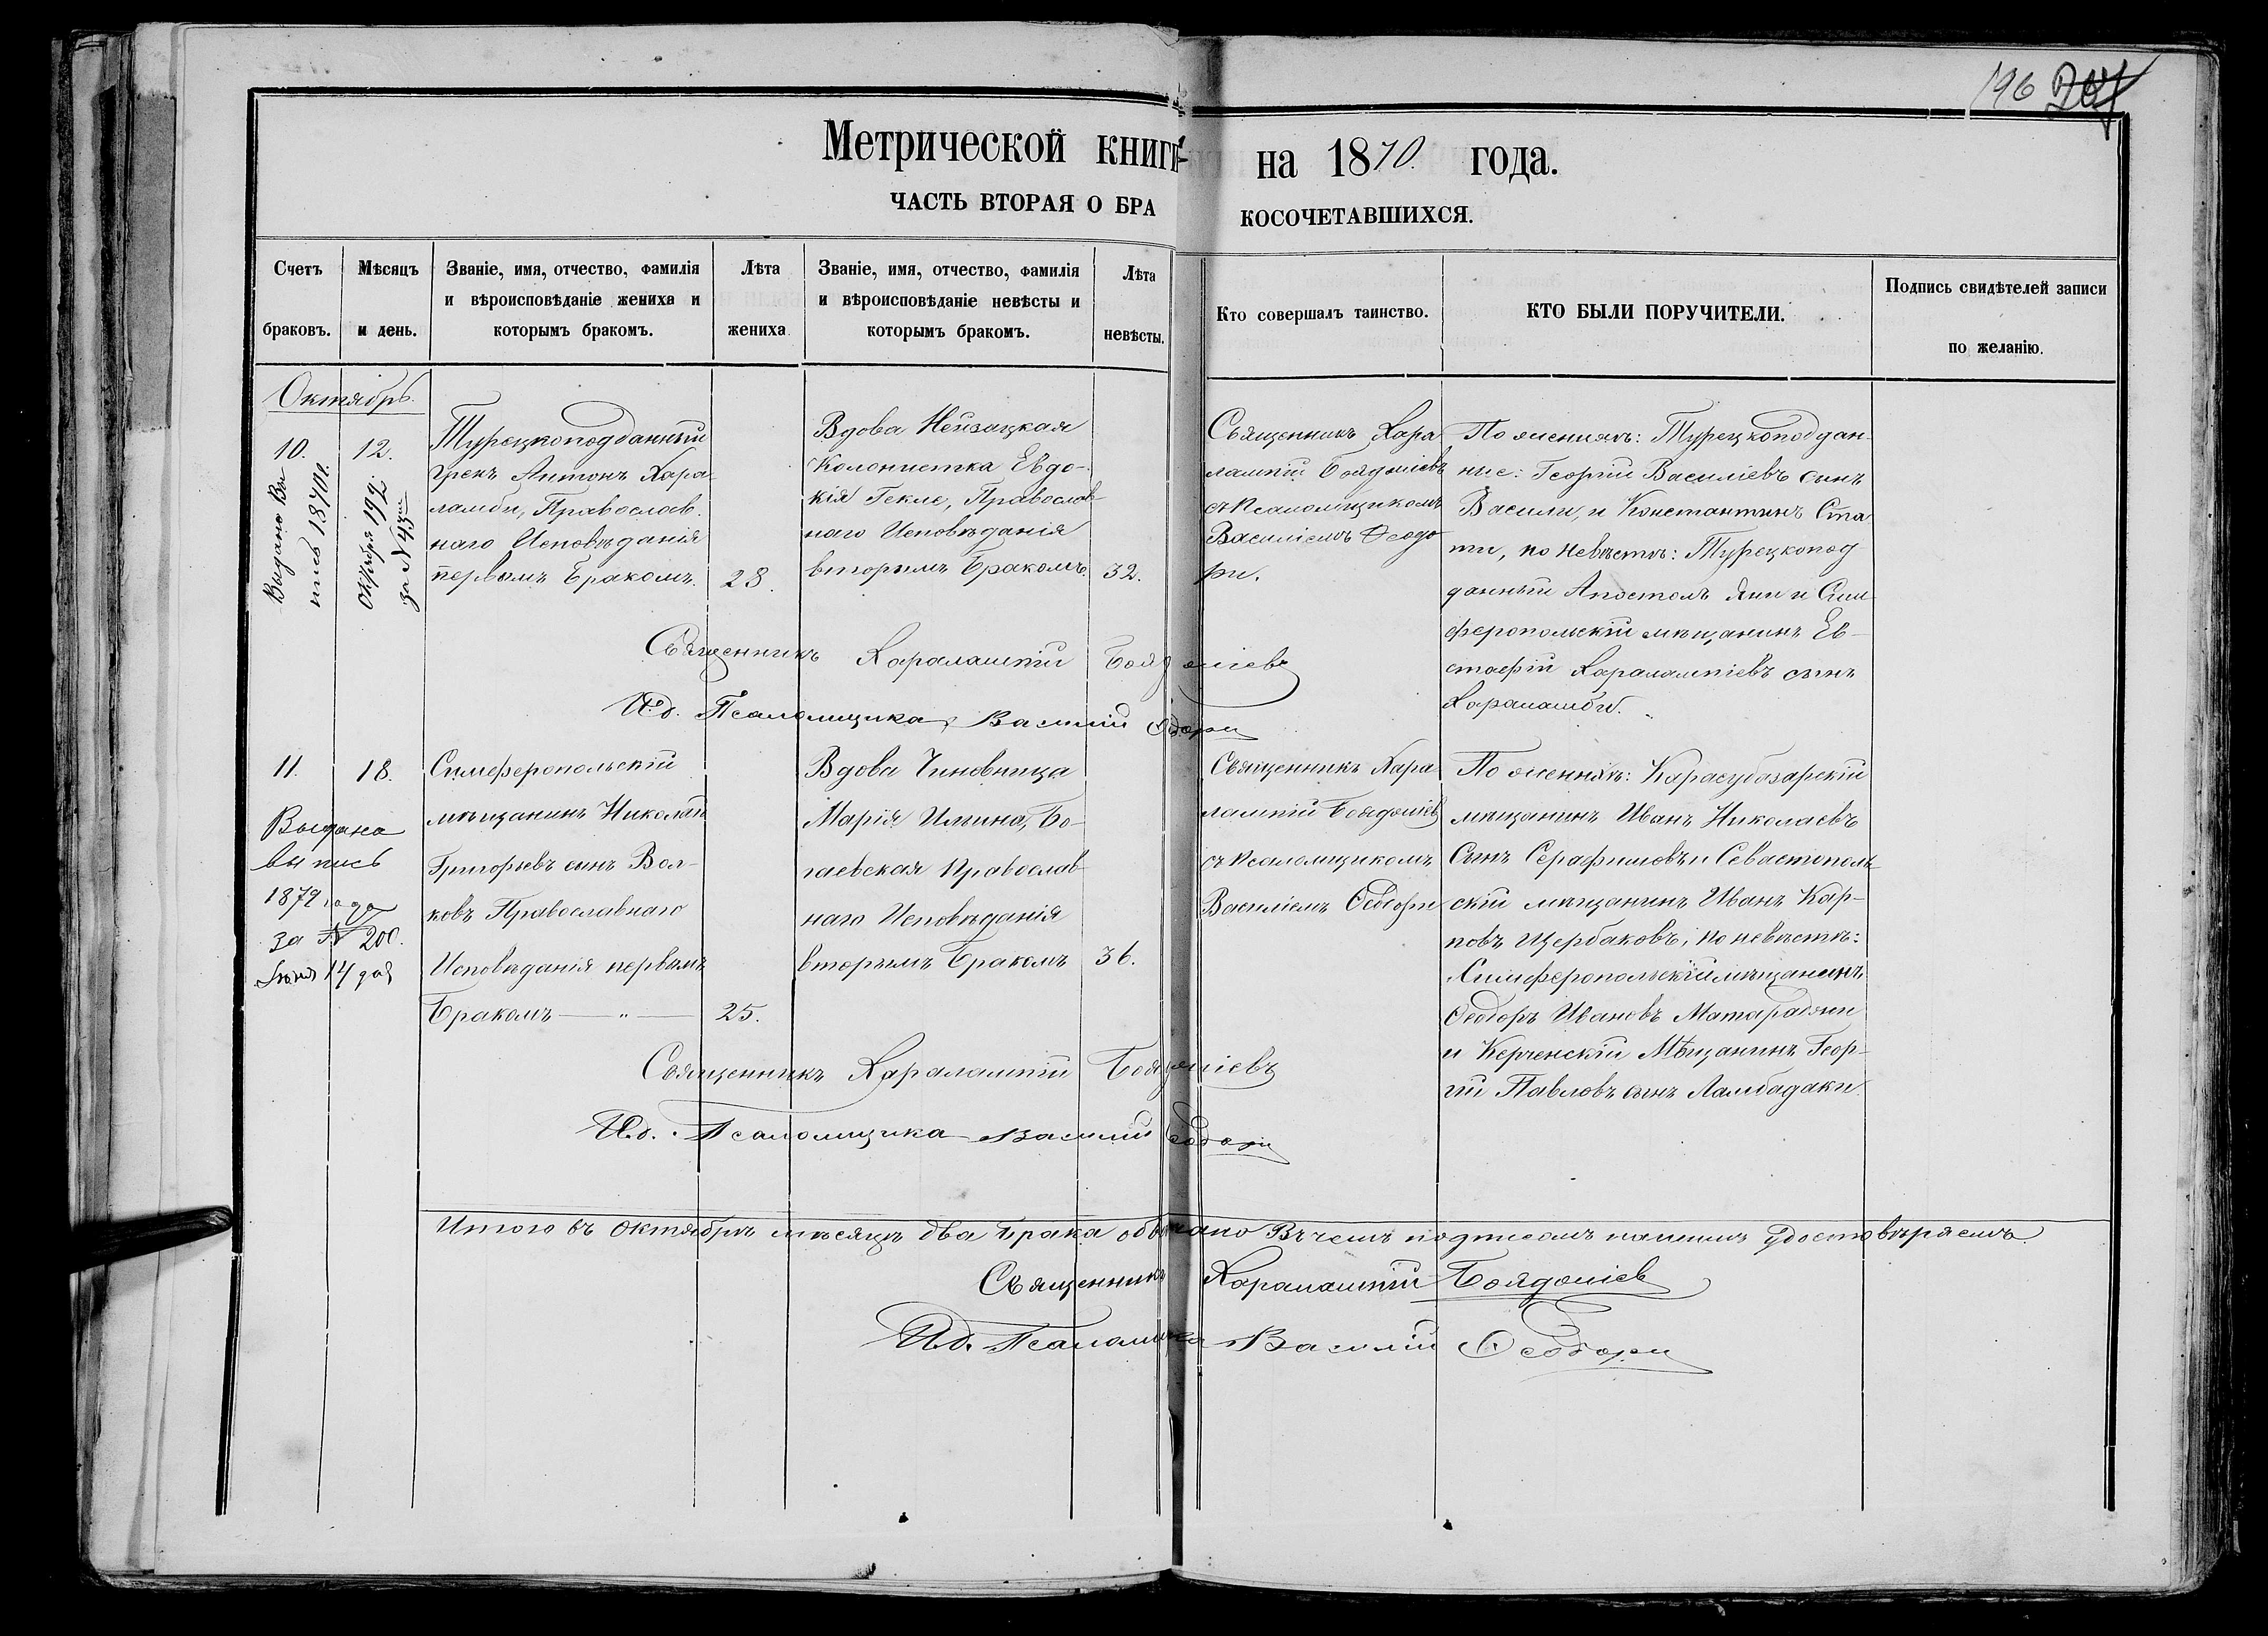 196
Метрической книги на 1870. года.
ЧАСТЬ ВТОРАЯ О БРАКОСОЧЕТАВШИХСЯ.
Счетъ браковъ.
Мѣсяцъ и день.
Званіе, имя, отчество, фамилія
и вѣроисповѣданіе жениха и
которымъ бракомъ.
Лѣта
жениха
Званіе, имя, отчество, фамилія
и вѣроисповѣданіе невѣсты и
которымъ бракомъ.
Лѣта
невѣсты.
Кто совершалъ таинство.
КТО БЫЛИ ПОРУЧИТЕЛИ.
Подпись свидѣтелей записи
по желанію.
Октябрь.
10.
12.
Выдано Вы
пись 1870г.
Октября 19
за №
Турецкоподданный
Грекъ Антонъ Хара
ламби, Православ.
наго Исповѣданія
первымъ Бракомъ.
28.
Вдова Нейзацкая
Колонистка Евдо-
кія Гекле, Православ
наго Исповѣданія
вторымъ Бракомъ.
32.
Священникъ Хара
лампій Боядожіевъ
съ Псаломщикомъ
Василіемъ Ѳеодо
ри.
По женихѣ: Турецкоподдан-
ные: Георгій Василіевъ сынъ
Васили, и Константинъ Ста
ти, по Невѣстѣ: Турецкопод
данный Апостолъ Яни и Сим
феропольскій мѣщанинъ Ев-
стафій Харалампіевъ сынъ
Хараламби.
Священникъ Харалампій Боядожіевъ
И.д. Псаломщика, Василій Ѳеодори
11.
18.
Выдана
выпись
1872 года
за № 200.
Симферопольскій
мѣщанинъ Николай
Григорьевъ сынъ Вол-
ковъ Православнаго
Исповѣданія первымъ
Бракомъ — " —
25.
Вдова Чиновница
Марія Ильина, Бо-
гаевская Православ
наго Исповѣданія
вторымъ Бракомъ
36.
Священникъ Хара
лампій Боядожіев
съ Псаломщикомъ
Василіемъ Ѳеодори
По женихѣ: Карасубазарскій
мѣщанинъ Иванъ Николаевъ
Сынъ Серафимовъ и Севастополь
скій мѣщанинъ Иванъ Кар-
повъ Щербаковъ, по невѣстѣ:
Симферопольскій мѣщанинъ
Ѳеодоръ Ивановъ
и Керченскій Мѣщанинъ Геор-
гій Павловъ сынъ Ламбадаки.
Священникъ Харалампій Боядожіевъ
И.д. Псаломщика Василій Ѳеодори
Итого въ Октябрѣ мѣсяцѣ два брака Въ чемъ подписомъ нашимъ удостовѣряемъ.
Священникъ Харалампій Боядожіев
И.д. Псаломщика Василій Ѳеодори